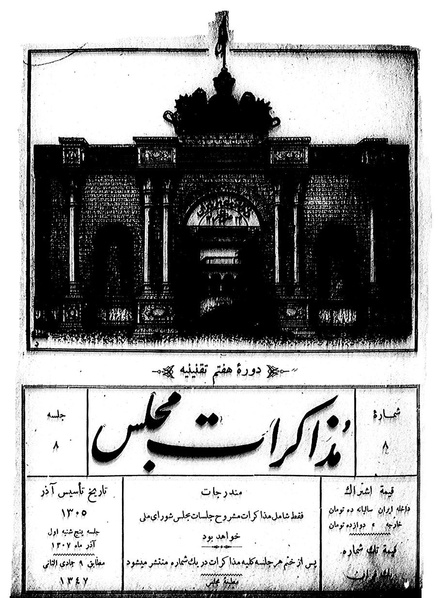 دورهٔ هفتم تقنینیه
شمارهٔ
۸
مذاکرات مجلس
جلسه
۸
قیمة اشتراك
داخله ایران سالیانه ده تومان
خارجه » دوازده تومان
قیمة تك شماره
یك قران
مندرجات
فقط شامل مذاکرات مشروح جلسات مجلس شورای ملی
خواهد بود
پس از ختم هر جلسه کلیه مذاکرات در یك شماره منتشر میشود
مطبعهٔ مجلس
تاریخ تأسیس آذر
۱۳۰۵
جلسه پنج شنبه اول
آذر ماه ۱۳۰۷
مطابق ۹ جمادی الثانی
۱۳۴۷